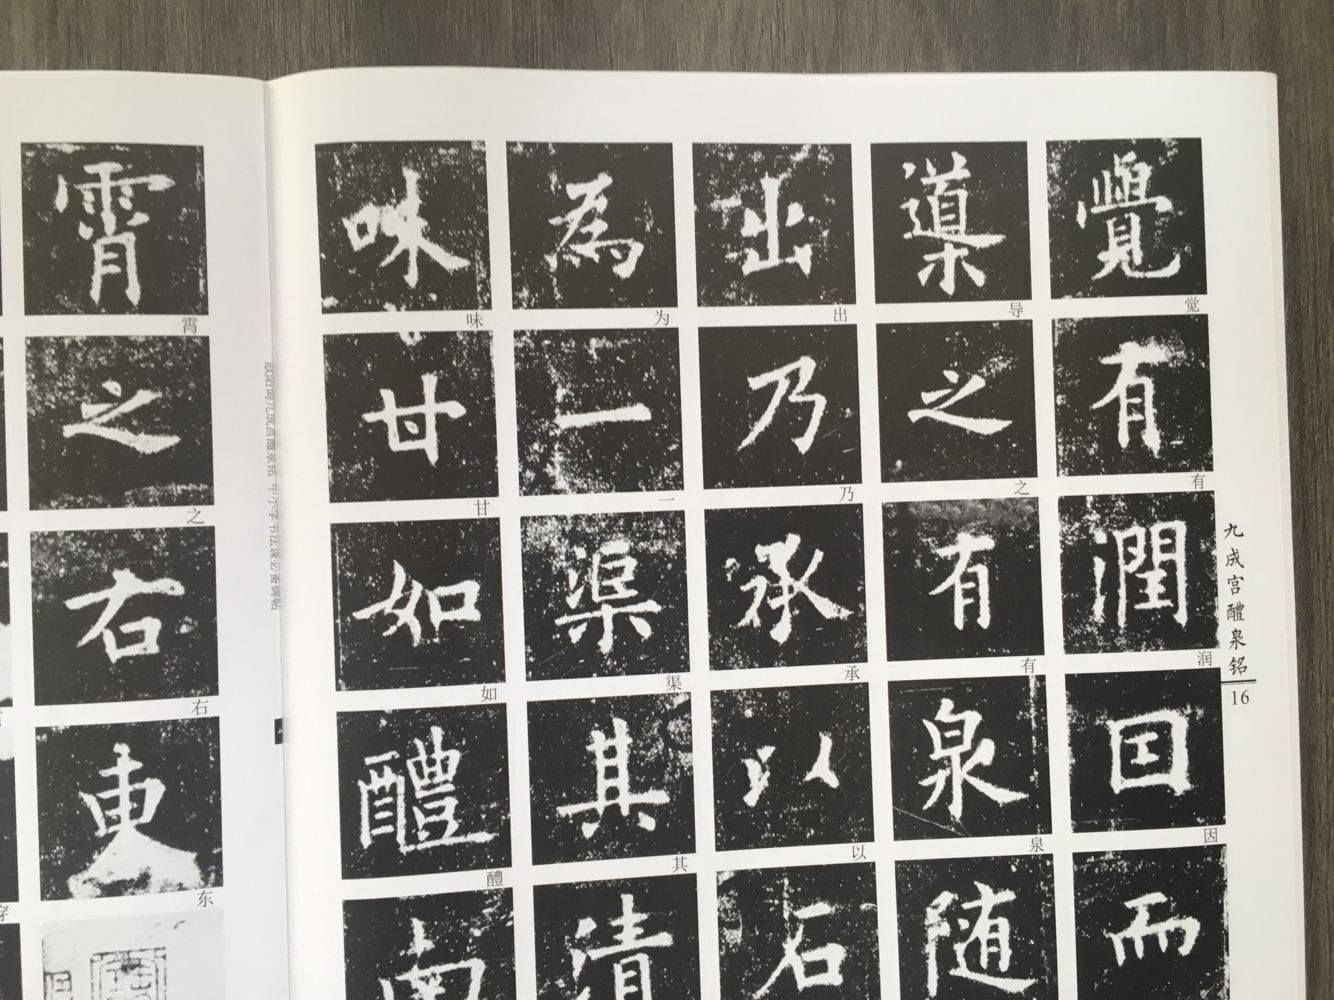 覺有潤因而
觉有润因
導之有泉随
导之有泉
出乃承以石
出乃承以
為一渠其清
为一渠其
味甘如醴南
味甘如醴
九成宫醴泉铭
16
霄之右東
霄之右东